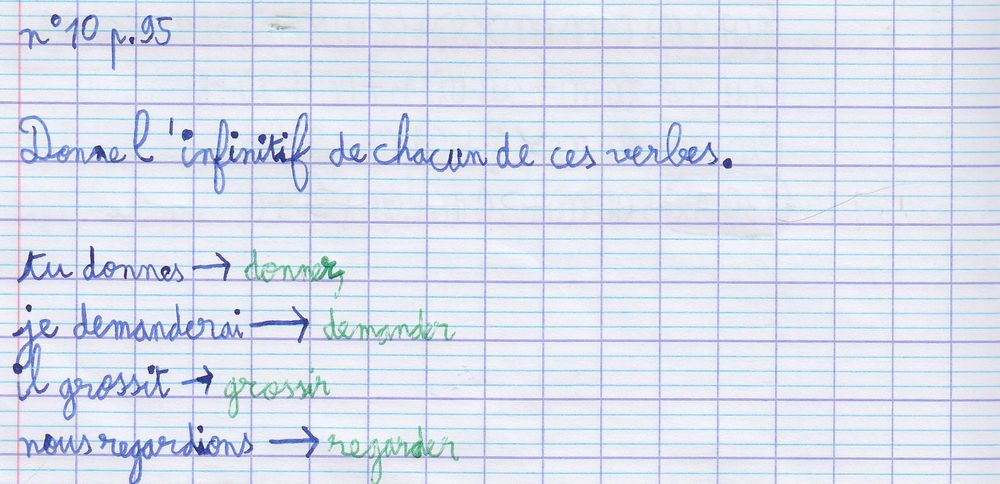 n°10 p.95
Donne l'infinitif de chacun de ces verbes.
tu donnes → donner
je demanderai → demander
il grossit → grossir
nous regardions → regarder